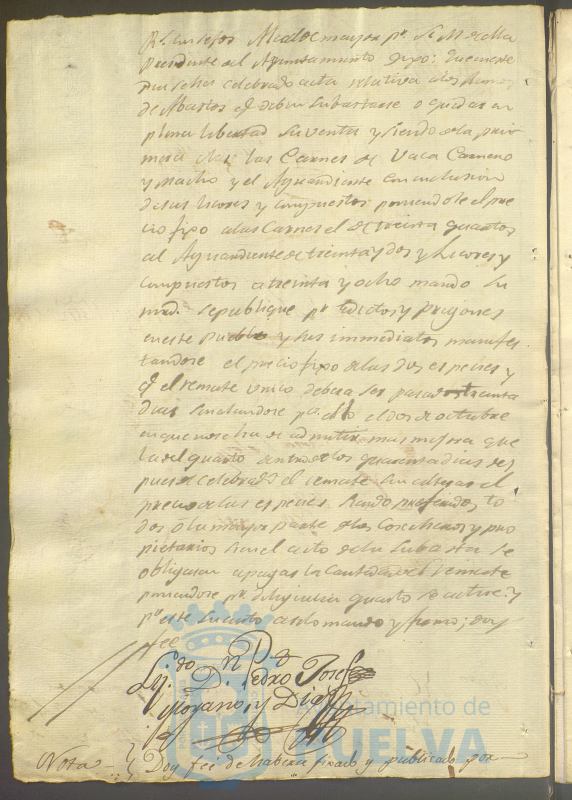 Alcalde mayor pr. S. M. de ella
Presidente del Ayuntamiento dixo: que en este
celebrado acta relativa a los Ramos
de Abastos qe. deben subastarse o quedar en
plena libertad su venta y siendo de la pri
mera clase las Carnes de Vaca Carnero
y Macho y el Aguardiente con inclusion
de sus licores y compuestos poniendole el pre
cio fixo a las Carnes el de treinta quartos
al Aguardiente de treinta y dos y licores y
compuestos a treinta y ocho mando su
mrd. se publique pr. edictos y pregones
en este Pueblo y sus immediatos manifes
tandose el precio fixo de las dos especies y
qe. el remate unico debera ser pasados treinta
dias señalandose pa. ello el dos de octubre
en que no se ha de admitir mas mejora que
la del quarto dentro de los quarenta dias des
pues de celebrado el remate sin alterar el
precio de las especies siendo preferidos to
dos o la mayor parte de los Cosecheros y pro
pietarios si en el acto de la subasta se
obligasen a pagar la cantidad del remate
poniendose pr. diligencia quanto se actue y
pr. este su auto asi lo mando y firmo; doy
fee
Lizdo. Dn. Pedro Josef
Moyano y Diaz
Nota Doy fee de haberse fixado y publicado por
Ayuntamiento de
HUELVA